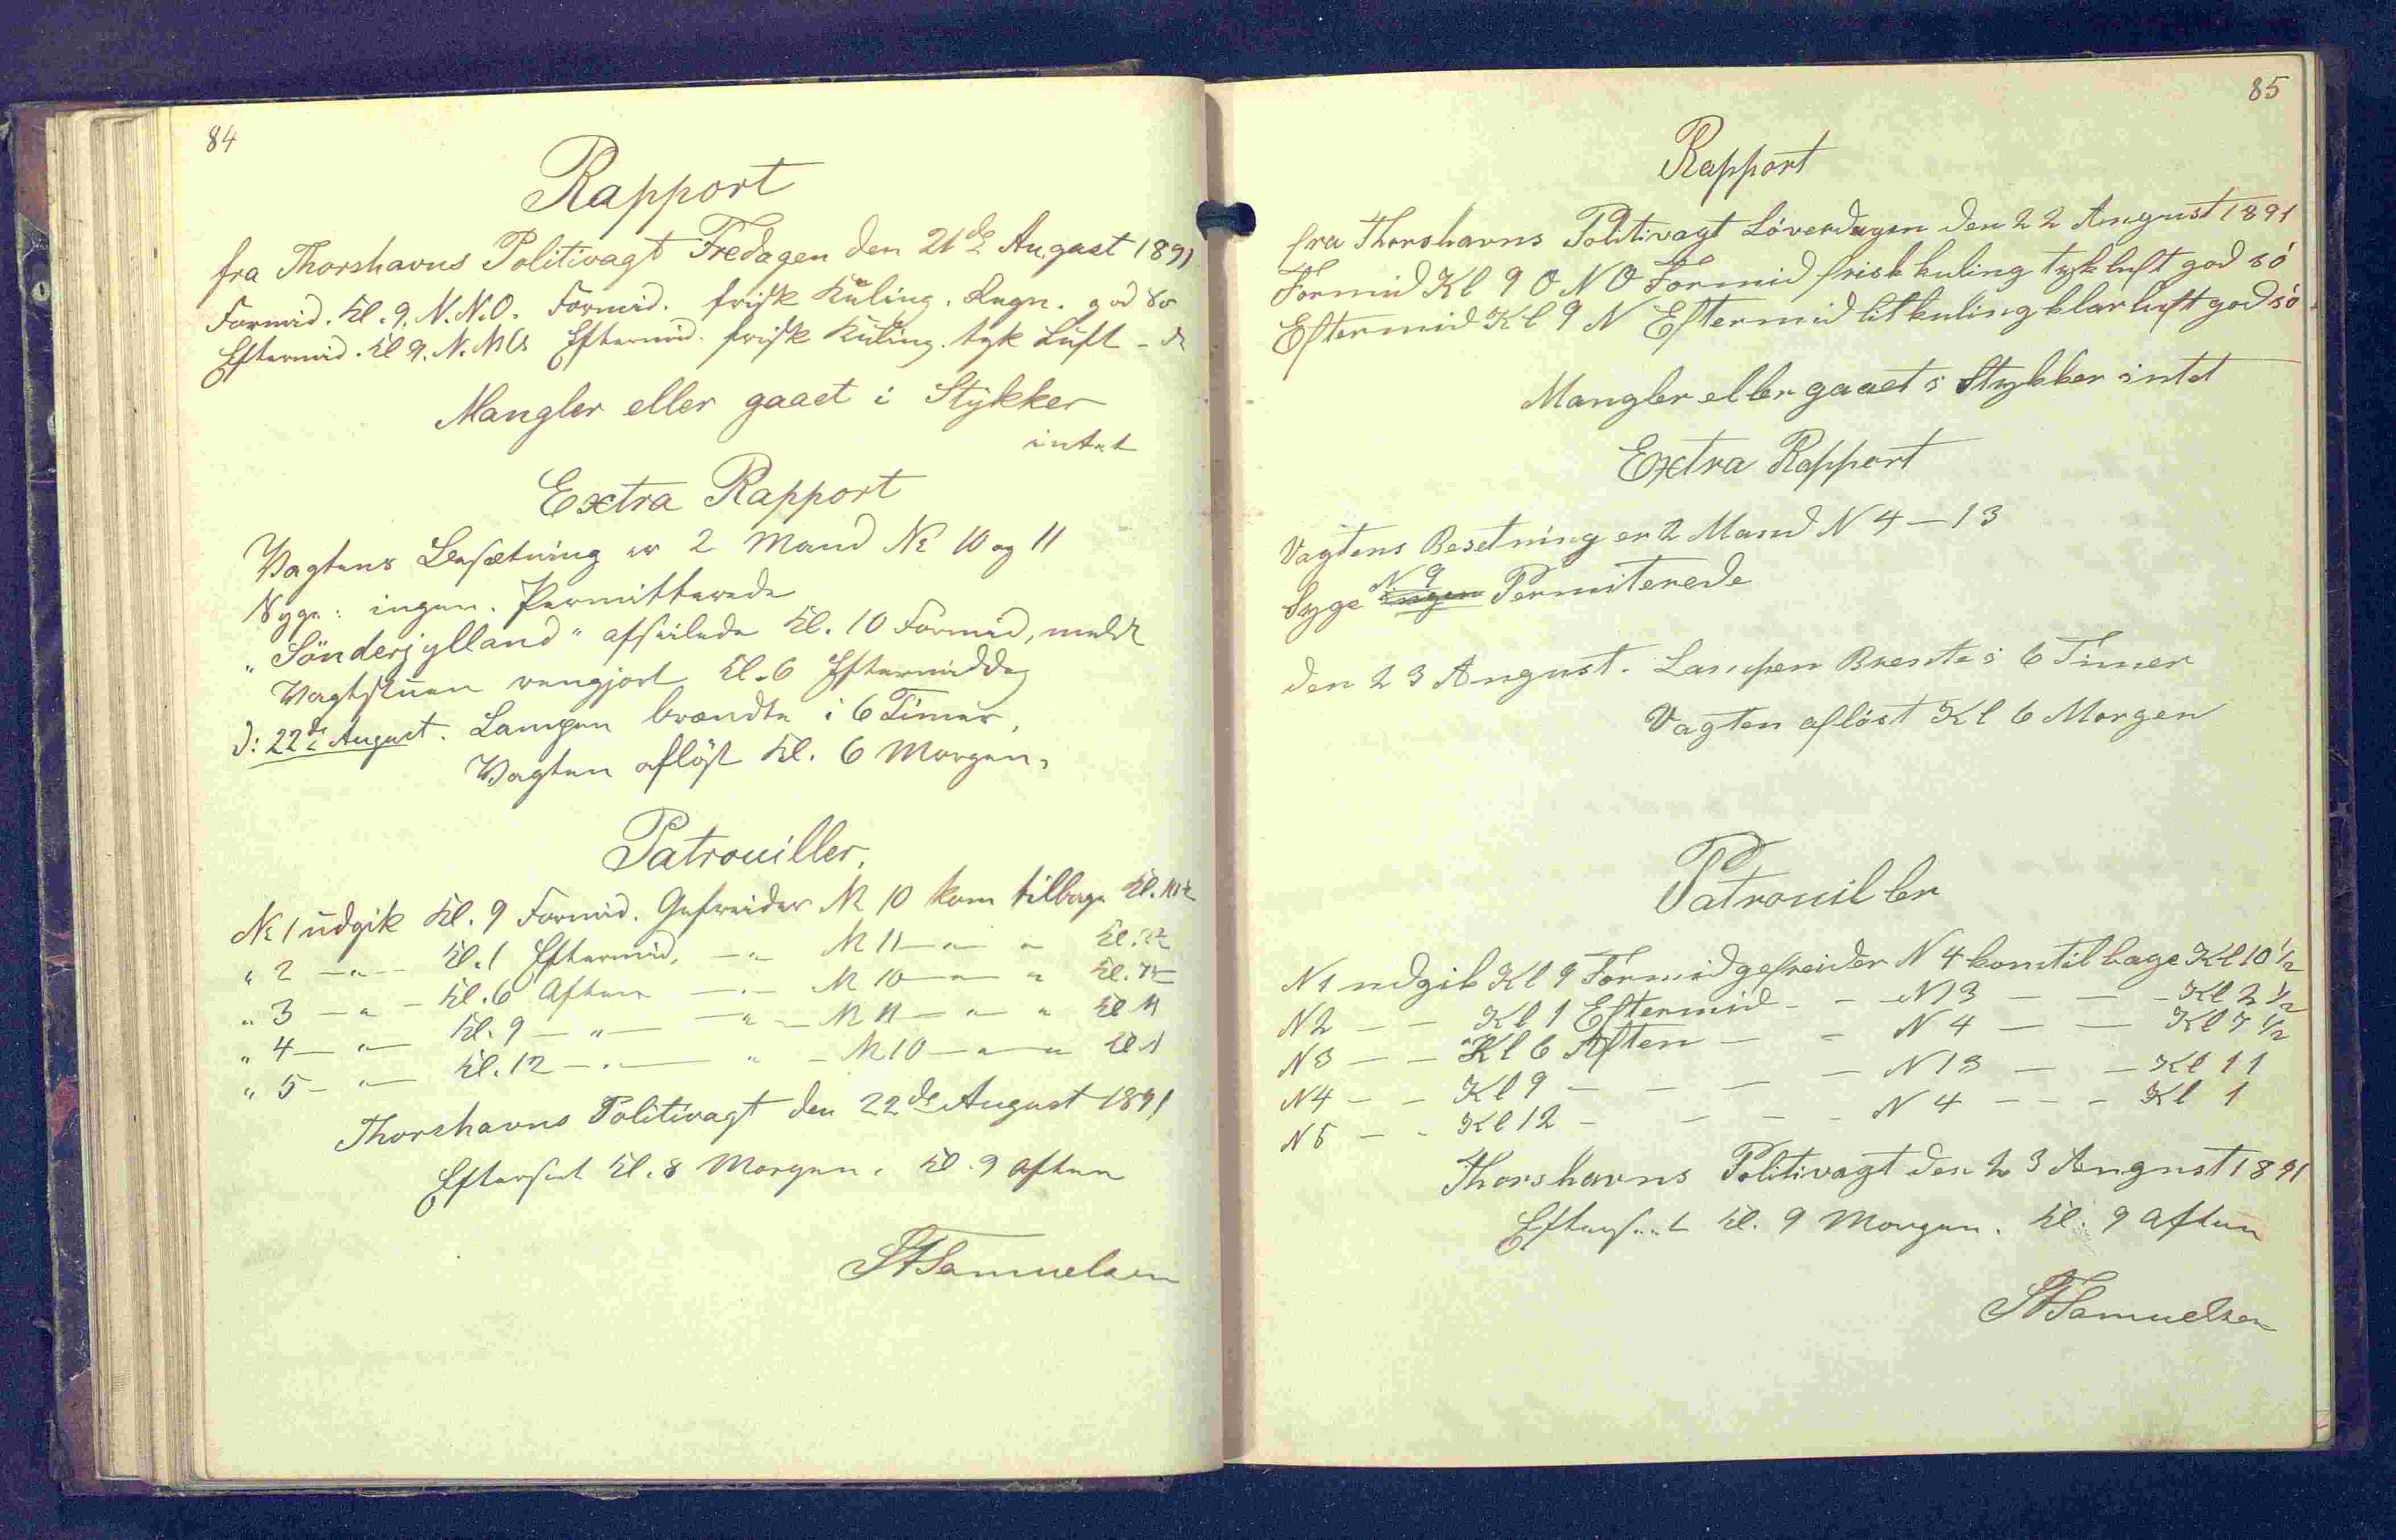 84
Rapport
fra Thorshavns Politivagt Fredagen den 21de August 1891
Formid. Kl. 9. N.N.O. Formid. frisk Kuling. Regn. god So
Eftermid. Kl 9. N. Eftermid. frisk Kuling. tyk Luft - do
Mangler eller gaaet i Stykker
intet
Extra Rapport
Vagtens Besætning er 2 Mand No 10 og 11
Syge: ingen. Permitterede
"Sönderjylland" afseilede Kl. 10 Formid,
Vagtstuen rengjort Kl. 6 Eftermiddag
D: 22de August. Lampen brændte i 6 Timer,
Vagten aflöst Kl. 6 Morgen.
Patrouiller.
No 1 udgik Kl. 9 Formid. Gefreider No 10 kom tilbage Kl. 10½
" 2 — " — Kl. 1 Eftermid, — " No 11 — " — " Kl. 2½
" 3 — " — Kl. 6 Aften — " — No 10 — " — " Kl. 7½
" 4 — " — Kl. 9 — " — " — No 11 — " — " Kl 11
" 5 — " — Kl. 12 — " — " — No 10 — " — " Kl 1
Thorshavns Politivagt den 22de August 1891
Efterseet Kl. 8 Morgen. Kl. 9 Aften
Samuelsen
85
Rapport
fra Thorshavns Politivagt Löverdagen den 22 August 1891
Formid Kl 9 O N O Formid frisk kuling tyk luft god só
Eftermid Kl 9 N Eftermid lit kuling klar luft god só
Mangler eller gaaet i Stykker intet
Extra Rapport
Vagtens Besetning er 2 Mand N 4 — 13
N 9
Syge ingen Permiterede
den 23 August. Lampen Brente i 6 Timer
Vagten aflöst Kl 6 Morgen
Patrouiller
N1 udgik Kl 9 Formid gefreider N 4 kom tilbage Kl 10 ½
N2 — — Kl 1 Eftermid - - N13 — — - Kl 2 ½
N3 — — Kl 6 Aften — - N 4 — — Kl 7 ½
N4 - - Kl 9 - — — — N13 — — Kl 11
N5 — - Kl 12 - — - - N 4 — - - Kl 1
Thorshavns Politivagt den 23 August 1891
Efterseet Kl. 9 Morgen. Kl. 9 Aften
Samuelsen